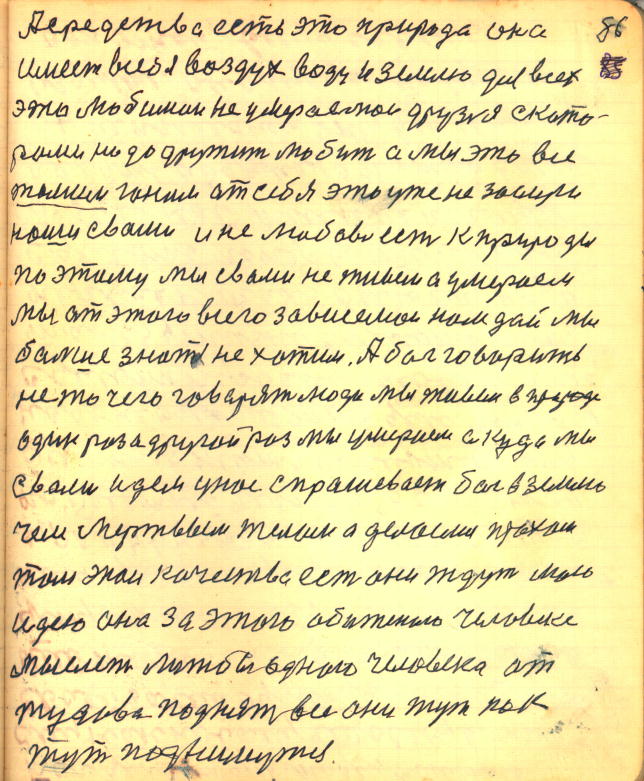 А средства есть это природа она 86
имеет в себя воздух воду и землю для всех
это любимои не умераемои друзя с кото-
рами надо дружит любит а мы это все
гоним от себя это уже не заслуги
наши свами и не любов ест к природы
поэтому мы свами не живем а умераем
мы от этого всего зависемои нам дай мы
больше знат не хотим. А бог говорить
не то чего говарят люди мы живем в природе
один раз а другой раз мы умераем а куда мы
свами идем у нас спрашевает бог в землю
чем мертвым телом а делоеми прахом
там этои качества ест они ждут мою
идею она за этого обиженого человека
мыслет хотябы одного человека от
тудова поднят все они тут как
тут поднимутся.